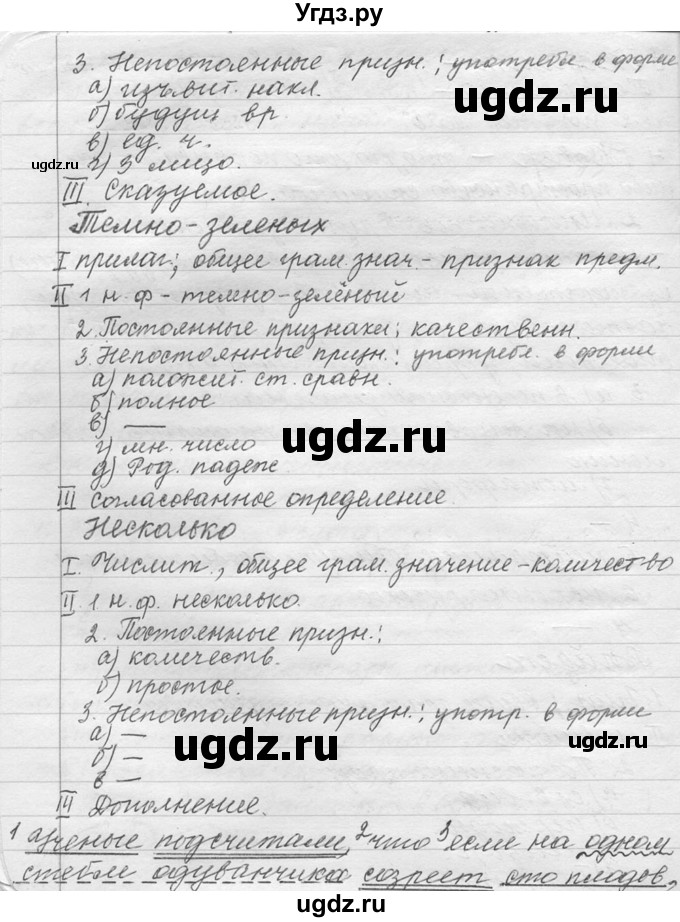 Угдз.ру
3. Непостоянные призн.: употребл. в форме
а) изъвит. накл.
б) будущ вр.
в) ед. ч.
г) 3 лицо.
III. Сказуемое.
Темно-зеленых
I прилаг.; общее грам. знач. - признак предм.
II 1 н. ф - темно-зелёный
2. Постоянные признаки: качественн.
3. Непостоянные призн.: употребл. в форме
а) положит. ст. сравн.
б) полное
в) —
г) мн. число
д) Род. падеж.
III согласованное определение.
Несколько
I. Числит., общее грам. значение - количество
II. 1 н. ф. несколько.
2. Постоянные призн.:
а) количеств.
б) простое.
3. Непостоянные призн.: употр. в форме
а) —
б) —
в —
III Дополнение.
1 Ученые подсчитали, 2 что 3 если на одном
стебле одуванчика созреет сто плодов,
ugdz.ru
ugdz.ru
ugdz.ru
ugdz.ru
ugdz.ru
ugdz.ru
ugdz.ru
ugdz.ru
Угдз.ру